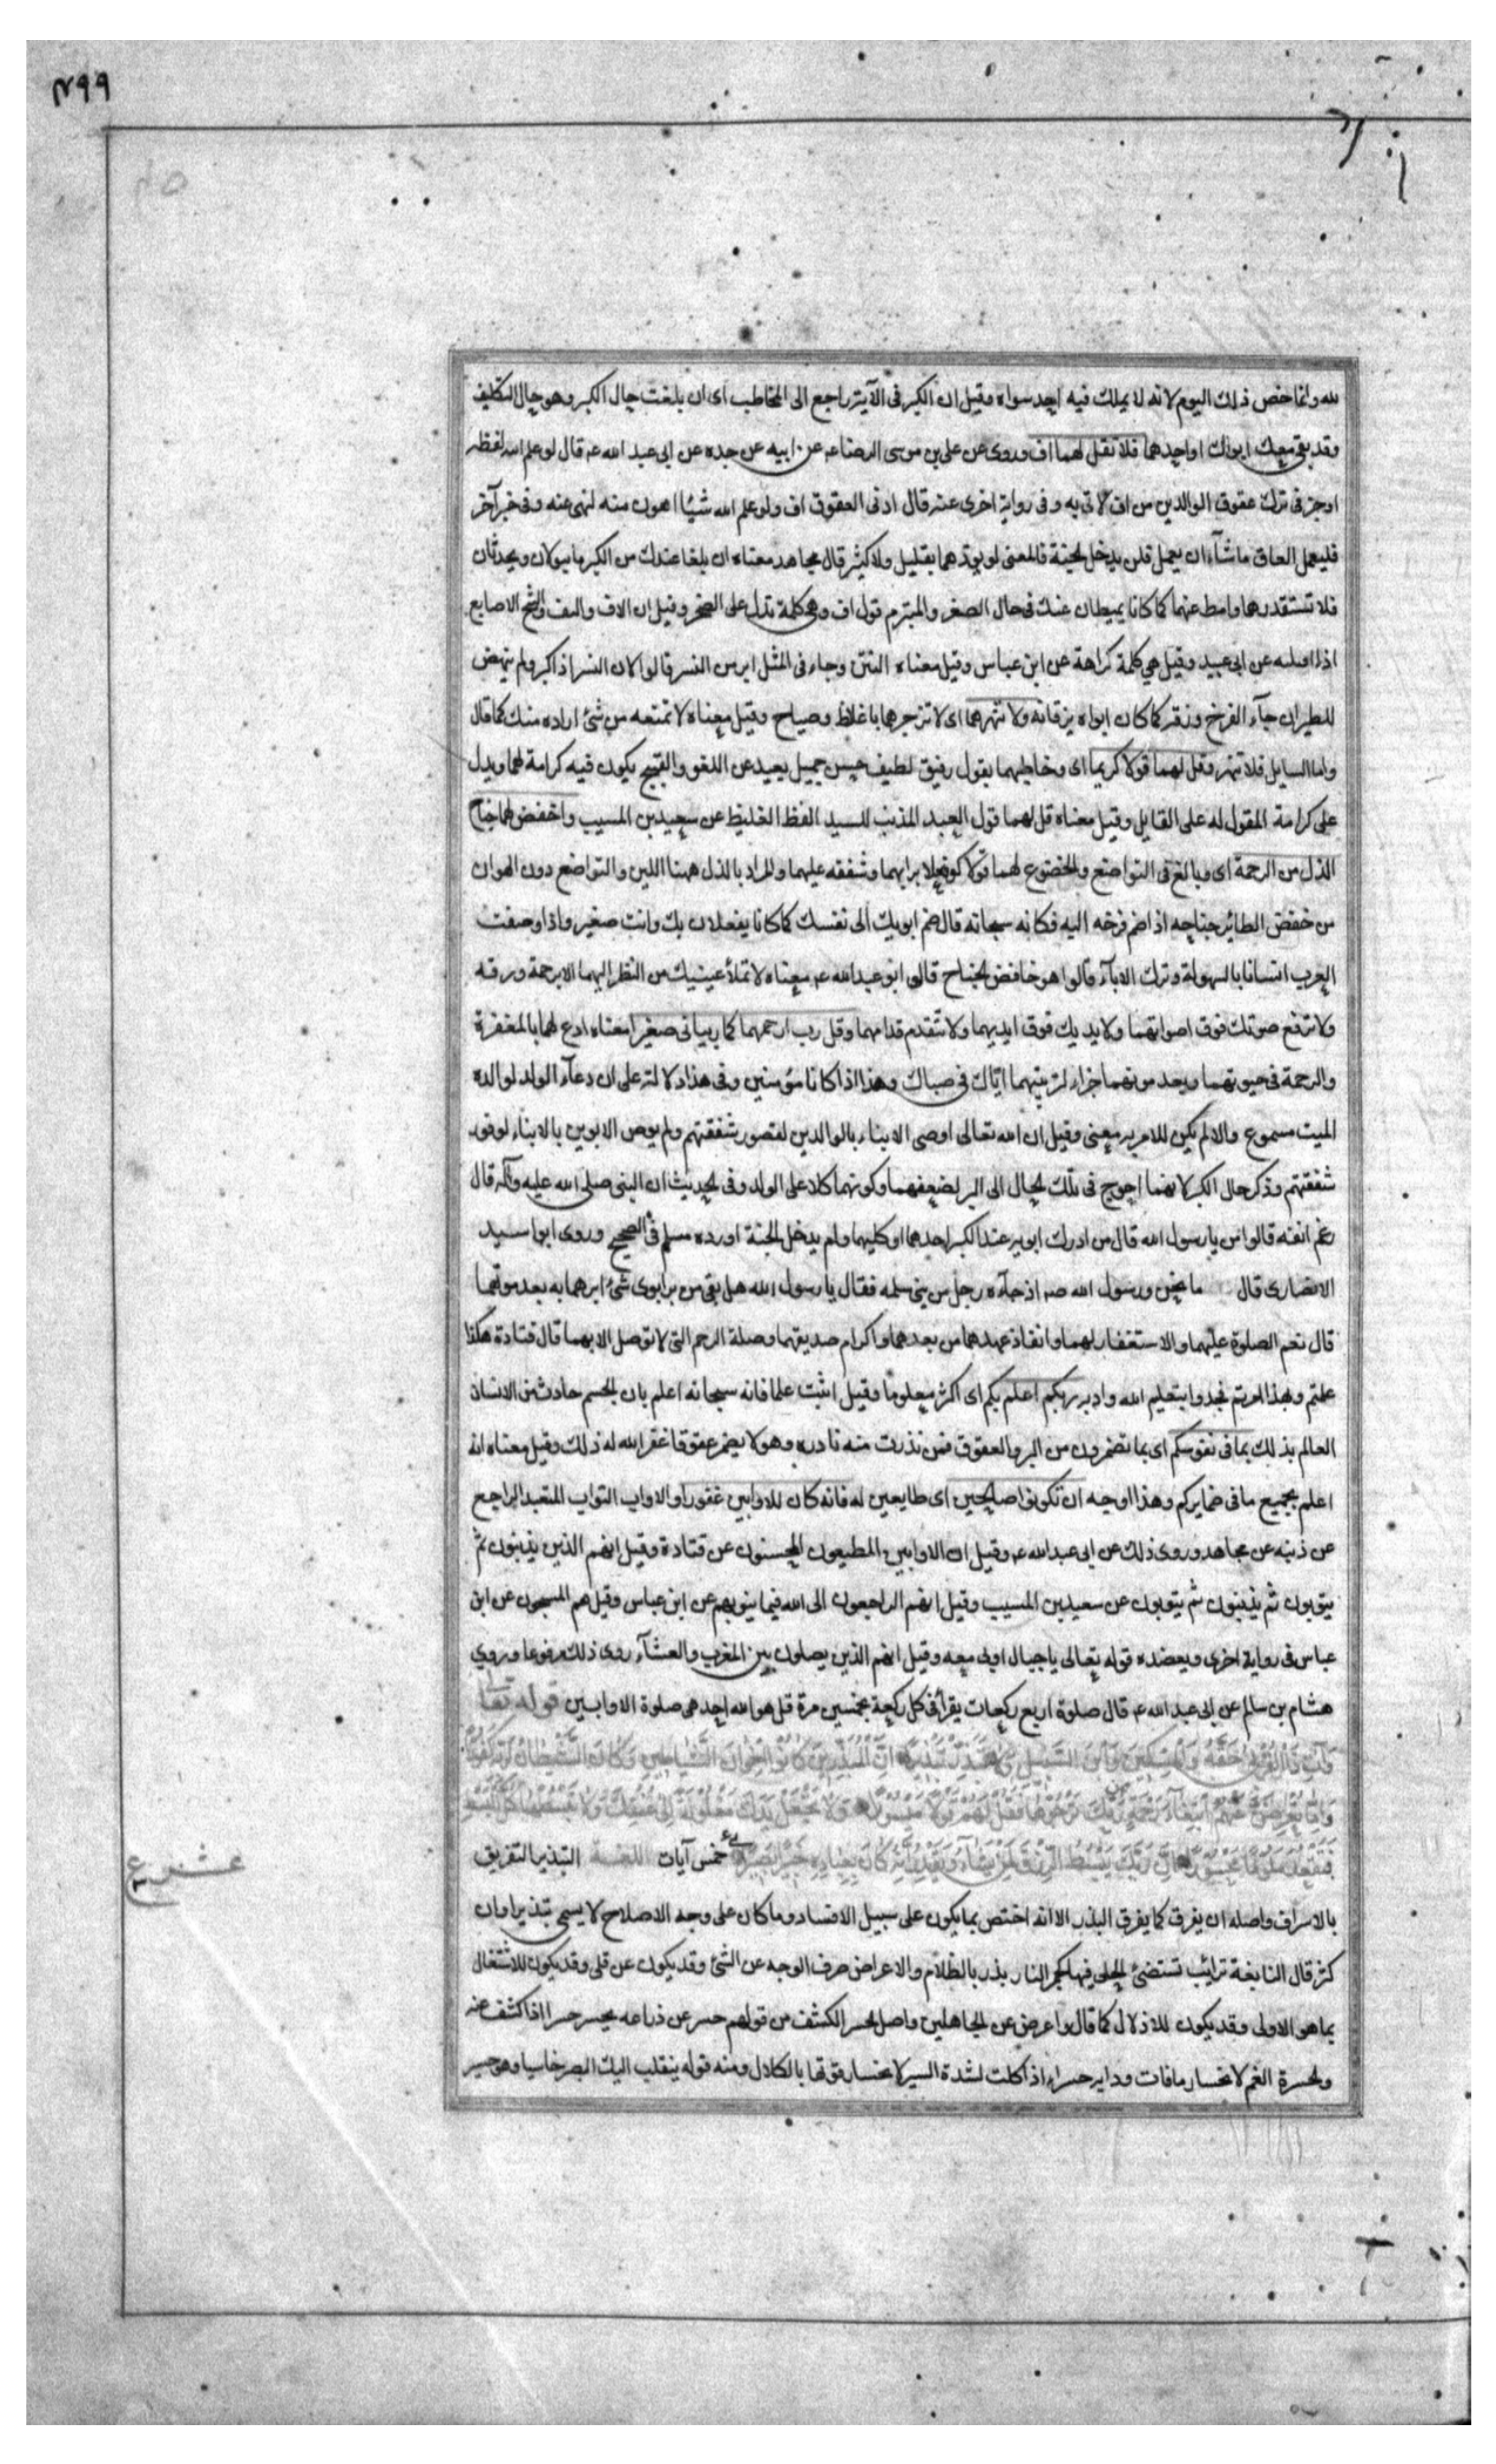 ٤٩٩
لله وانما خص ذلك اليوم لانه لا يملك فيه احد سواه وقيل ان الكبر فى الآية راجع الى المخاطب اى ان بلغت حال الكبر وهو حال التكليف
وقد بقى معك ابواك او احدهما فلا تقل لهما اف وروى عن على بن موسى الرضا عـ عن ابيه عن جده عن ابى عبد الله عـ قال لو علم الله لفظه
اوجز فى ترك عقوق الوالدين من اف لاتى به وفى رواية اخرى عنه قال ادنى العقوق اف ولو علم الله شيئا اهون منه لنهى عنه وفى خبر آخر
فليعمل العاق ما شاء ان يعمل فلن يدخل الجنة فالمعنى لو يوذهما بقليل ولا كثير قال مجاهد معناه ان بلغا عندك من الكبر ما يبولان ويحدثان
فلا تستقذرهما وامط عنهما كما كانا يميطان عنك فى حال الصغر والمتبرم قول اف وهى كلمة تدل على الضجر وقيل ان الاف والتف وسخ الاصابع
اذا فتلته عن ابى عبيد وقيل هى كلمة كراهة عن ابن عباس وقيل معناه النتن وجاء فى المثل ابر من النسر قالوا لان النسر اذا كبر ولم ينهض
للطيران جآء الفرخ وزقه كما كان ابواه يزقانه ولا تنهرهما اى لا تزجرهما باغلاظ وصياح وقيل معناه لا تمتنعه من شئ اراده منك كما قال
واما السايل فلا تنهر وقل لهما قولا كريما اى وخاطبهما بقول رفيق لطيف حسن جميل بعيد عن اللغو والقبيح يكون فيه كرامة لهما ويدل
على كرامة المقول له على القايل وقيل معناه قل لهما قول العبد المذنب للسيد الفظ الغليظ عن سعيد بن المسيب واخفض لهما جناح
الذل من الرحمة اى وبالغ فى التواضع والخضوع لهما قولا وفعلا برا بهما وشفقه عليهما والمراد بالذل ههنا اللين والتواضع دون الهوان
من خفض الطائر جناحه اذا ضم فرخه اليه فكانه سبحانه قال ضم ابويك الى نفسك كما كانا يفعلان بك وانت صغير واذا وصفت
العرب انسانا بالسهولة وترك الاباء قالوا هو خافض الجناح قال ابو عبد الله عـ معناه لا تملأ عينيك من النظر اليهما الا برحمة ورقه
ولا ترفع صوتك فوق اصواتهما ولا يديك فوق ايديهما ولا تتقدم قدامهما وقل رب ارحمهما كما ربيانى صغيرا معناه ادع لهما بالمغفرة
والرحمة فى حيوتهما وبعد موتهما جزاء لتربيتهما اياك فى صباك وهذا اذا كانا مؤمنين وفى هذا دلالة على ان دعآء الولد لوالده
الميت مسموع والا لم يكن للامر به معنى وقيل ان الله تعالى اوصى الابناء بالوالدين لقصور شفقتهم ولم يوص الابوين بالابناء لوفور
شفقتهم وذكر حال الكبر لانهما احوج فى تلك الحال الى البر لضعفهما وكونهما كلا على الولد وفى الحديث ان النبى صلى الله عليه وآله قال
رغم انفه قالوا من يا رسول الله قال من ادرك ابويه عند الكبر احدهما او كليهما ولم يدخل الجنة اورده مسلم فى الصحيح وروى ابو اسيد
الانصارى قال ما نحن ورسول الله صـ اذ جآءه رجل من بنى سلمه فقال يا رسول الله هل بقى من بر ابوى شئ ابرهما به بعد موتهما
قال نعم الصلوة عليهما والاستغفار لهما وانفاذ عهدهما من بعدهما واكرام صديقهما وصلة الرحم التى لا توصل الا بهما قال قتادة هكذا
علمتم وبهذا امرتم فخذوا بتعليم الله وادبه ربكم اعلم بكم اى اكثر معلوما وقيل اثبت علما فانه سبحانه اعلم بان الجسم حادث من الانسان
العالم بذلك بما فى نفوسكم اى بما تضمرون من البر والعقوق فمن نذرت منه نادره وهو لا يضمر عقوقا غفر الله له ذلك وقيل معناه انه
اعلم بجميع ما فى ضمايركم وهذا اوجه ان تكونوا صالحين اى طايعين له فانه كان للاوابين غفورا والاواب التواب المتعبد الراجع
عن ذنبه عن مجاهد وروى ذلك عن ابى عبد الله عـ وقيل ان الاوابين المطيعون المحسنون عن قتادة وقيل انهم الذين يذنبون ثم
يتوبون ثم يذنبون ثم يتوبون عن سعيد بن المسيب وقيل انهم الراجعون الى الله فيما ينوبهم عن ابن عباس وقيل هم المسبحون عن ابن
عباس فى رواية اخرى ويعضده قوله تعالى يا جبال اوبى معه وقيل انهم الذين يصلون بين المغرب والعشآء روى ذلك مرفوعا وروي
هشام بن سالم عن ابى عبد الله عـ قال صلوة اربع ركعات يقرأ فى كل ركعة بخمسين مرة قل هو الله احد هى صلوة الاوابين قوله تعا
وَآتِ ذَا الْقُرْبَى حَقَّهُ وَالْمِسْكِينَ وَابْنَ السَّبِيلِ وَلَا تُبَذِّرْ تَبْذِيرًا اِنَّ الْمُبَذِّرِينَ كَانُوا اِخْوَانَ الشَّيَاطِينِ وَكَانَ الشَّيْطَانُ لِرَبِّهِ كَفُورًا
وَاِمَّا تُعْرِضَنَّ عَنْهُمُ ابْتِغَآءَ رَحْمَةٍ مِنْ رَبِّكَ تَرْجُوهَا فَقُلْ لَهُمْ قَوْلًا مَيْسُورًا وَلَا تَجْعَلْ يَدَكَ مَغْلُولَةً اِلَى عُنُقِكَ وَلَا تَبْسُطْهَا كُلَّ الْبَسْطِ
فَتَقْعُدَ مَلُومًا مَحْسُورًا اِنَّ رَبَّكَ يَبْسُطُ الرِّزْقَ لِمَنْ يَشَآءُ وَيَقْدِرُ اِنَّهُ كَانَ بِعِبَادِهِ خَبِيرًا بَصِيرًا خمس آيات اللغة التبذير التفريق
عشر ع
بالاسراف واصله ان يفرق كما يفرق البذر الا انه اختص بما يكون على سبيل الافساد وما كان على وجه الاصلاح لا يسمى تبذيرا وان
كثر قال النابغة ترائب تستضئ الحلى فيها كجمر النار بذر بالظلام والاعراض صرف الوجه عن الشئ وقد يكون عن قلى وقد يكون للاشتغال
بما هو الاولى وقد يكون للاذلال كما قال واعرض عن الجاهلين واصل الحسر الكشف من قولهم حسر عن ذراعه يحسر حسرا اذا كشف عنه
والحسرة الغم لانحسار ما فات ودابه حسراء اذا كلت لشدة السير لانحسار قوتها بالكلال ومنه قوله ينقلب اليك البصر خاسيا وهو حسير